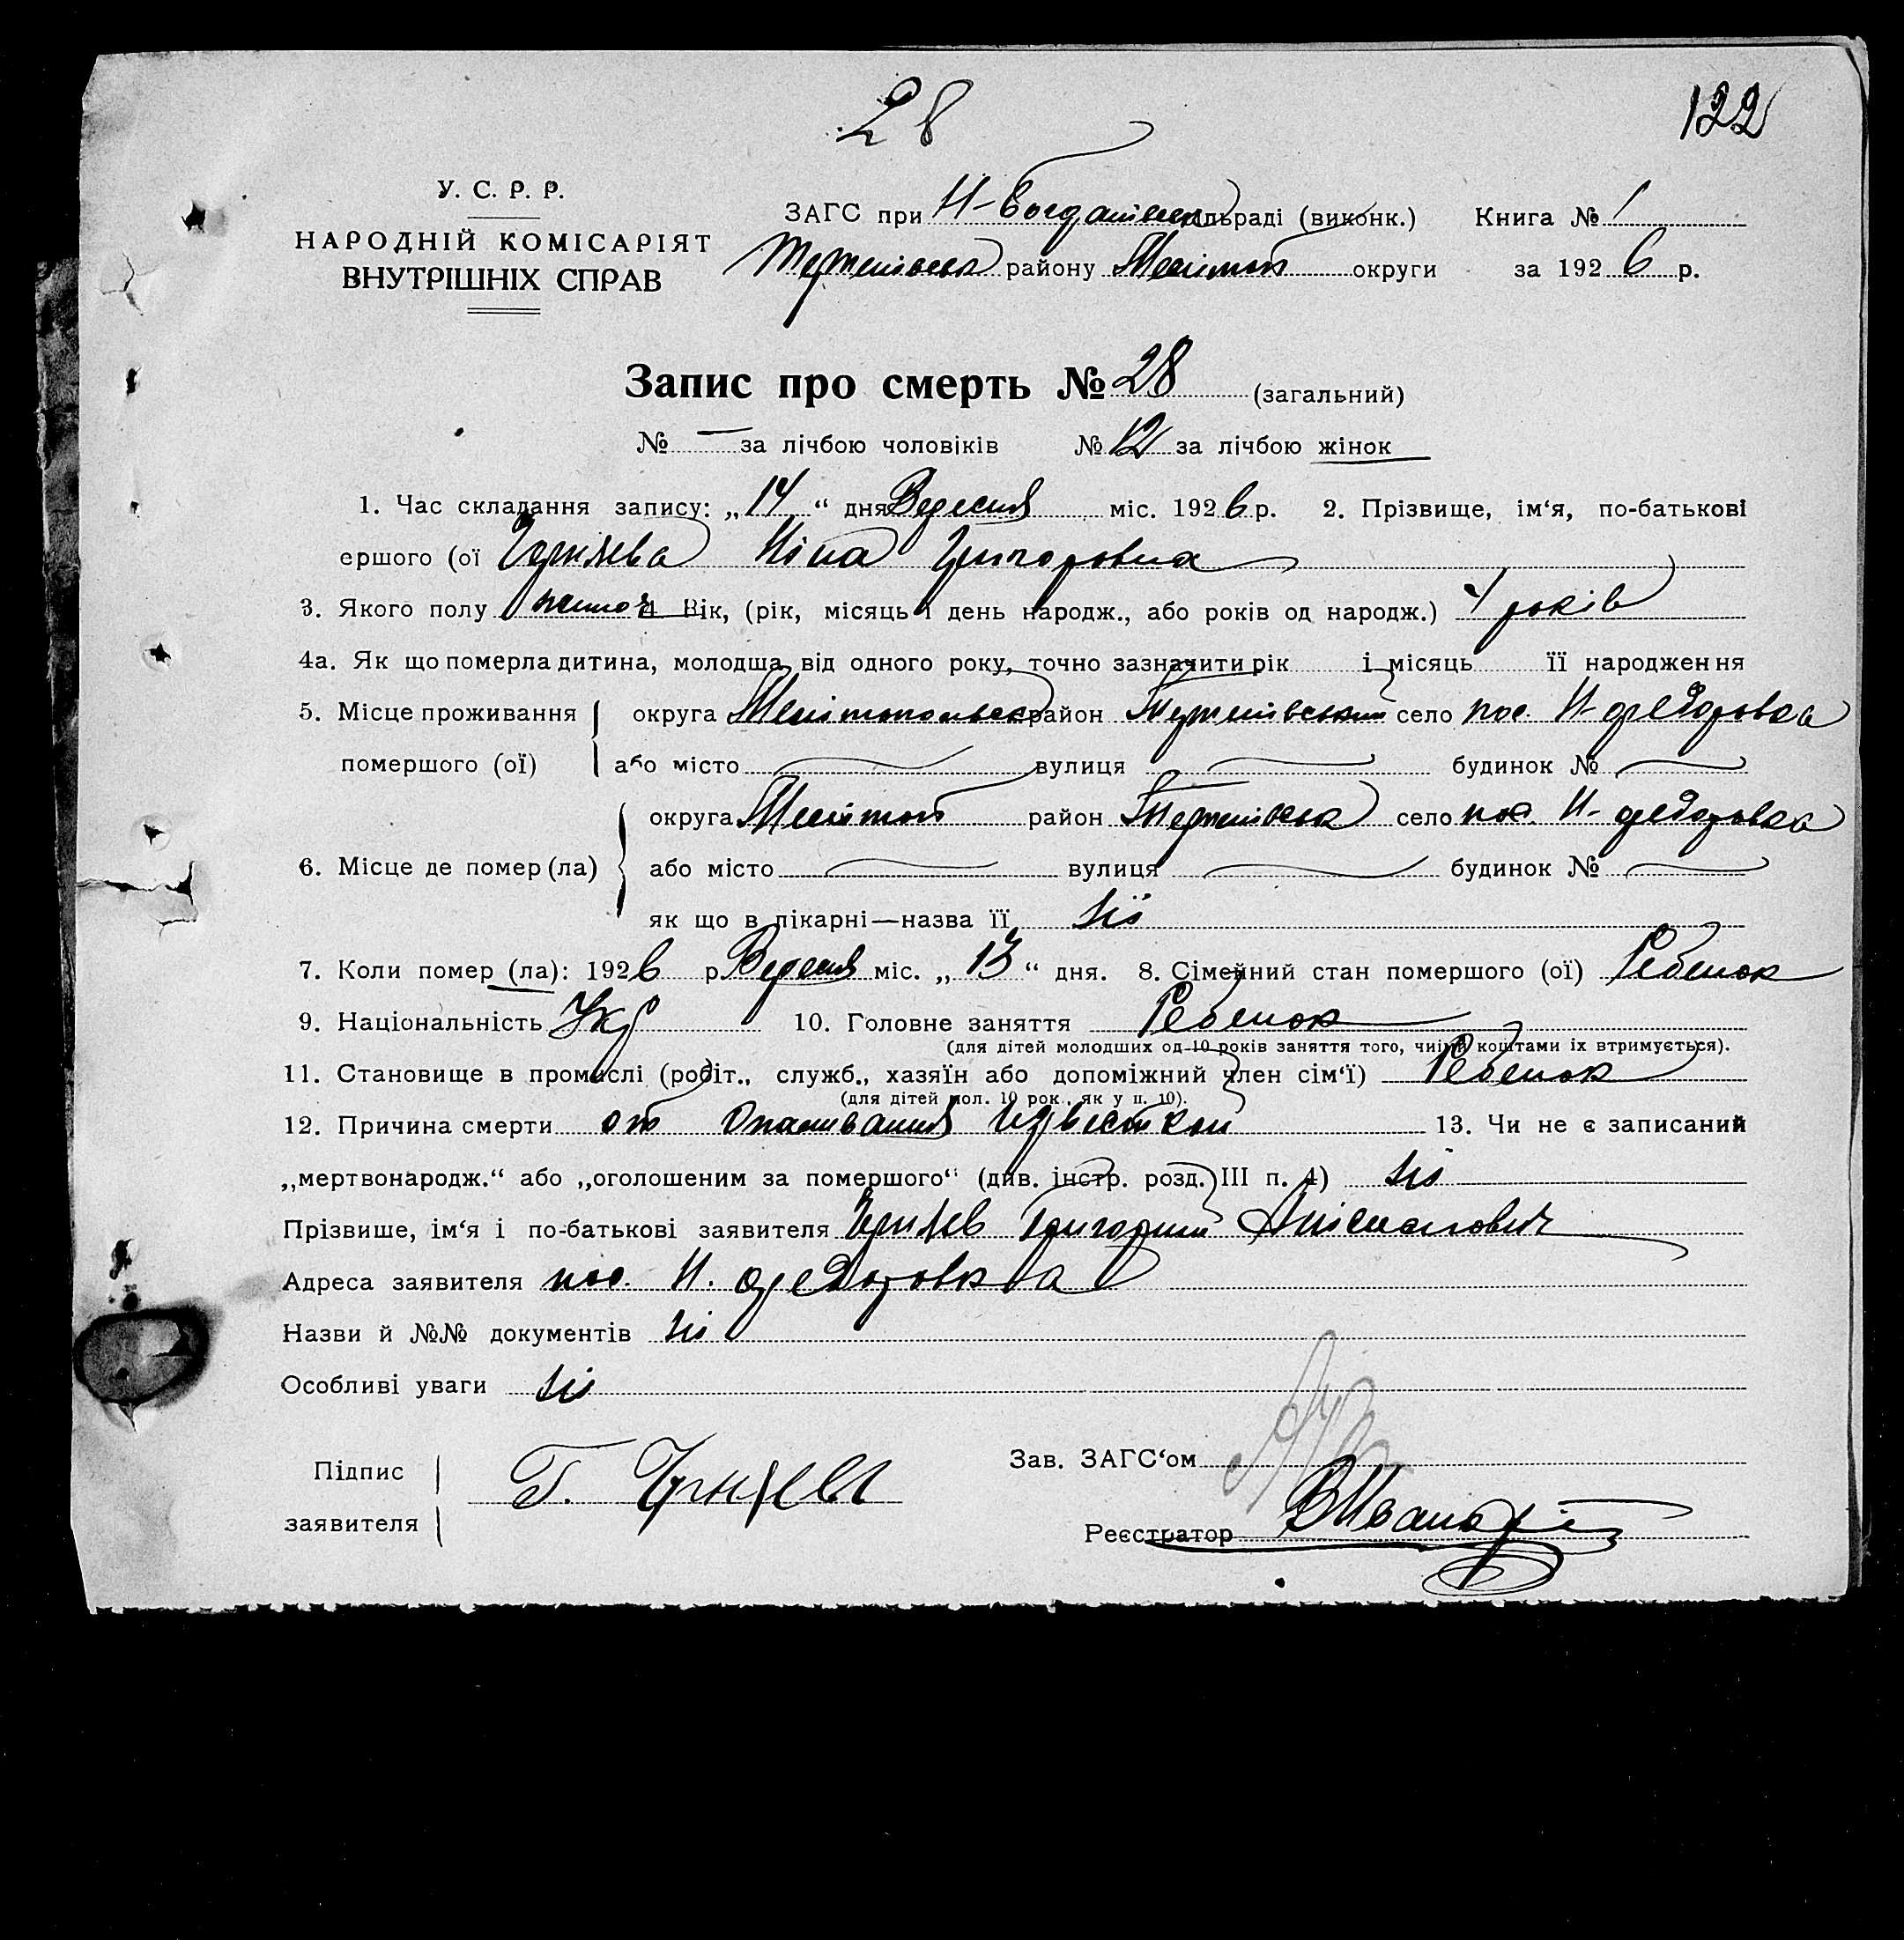 28
122
У. С. Р. Р.
НАРОДНІЙ КОМІСАРІЯТ
ВНУТРІШНІХ СПРАВ
ЗАГС при Н-Богданівськ ільраді (виконк.) Книга № 1
району Мелітоп округи за 1926 р.
Запис про смерть № 28 (загальний)
№ — за лічбою чоловіків № 12 за лічбою жінок
1. Час складання запису: „14“ дня Вересня міс. 1926 р. 2. Прізвище, ім‘я, по-батькові
ершого (ої Ніна Григоровна
3. Якого полу жіноч 4 Вік, (рік, місяць і день народж., або років од народж.) 4 років
4а. Як що померла дитина, молодша від одного року, точно зазначити рік і місяць її народження
5. Місце проживання округа Мелітопольськ район село пос. Н-федоровка
помершого (ої) або місто вулиця будинок №
округа Мелітоп район село пос. Н-федоровка
6. Місце де помер (ла) або місто вулиця будинок №
як що в лікарні—назва її ні
7. Коли помер (ла): 1926 р Вересня міс. „13“ дня. 8. Сімейний стан помершого (ої) Ребенок
9. Національність Укр 10. Головне заняття Ребенок
(для дітей молодших од 10 років заняття того, чиїми коштами їх втримується).
11. Становище в промислі (робіт., служб., хазяїн або допоміжний член сім‘ї) Ребенок
(для дітей мол. 10 рок., як у п. 10).
12. Причина смерти от известкой 13. Чи не є записаний
„мертвонародж.“ або „оголошеним за помершого“ (див. інстр. розд. III п. 4) ні
Прізвище, ім‘я і по-батькові заявителя Григорий
Адреса заявителя пос. Н. федоровка
Назви й №№ документів ні
Особливі уваги ні
Підпис
заявителя
Г.
Зав. ЗАГС‘ом
Реєстратор